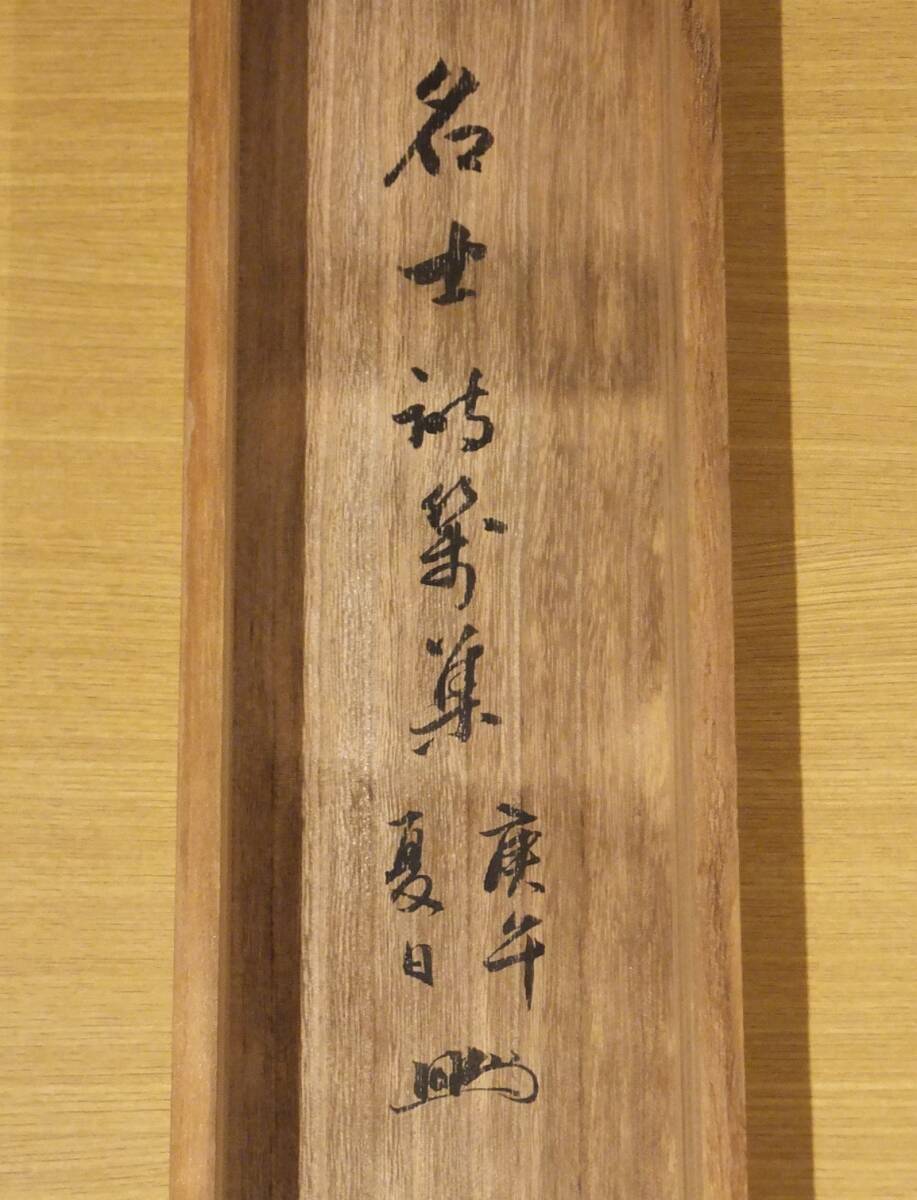 名士詩箋集
庚午
夏日